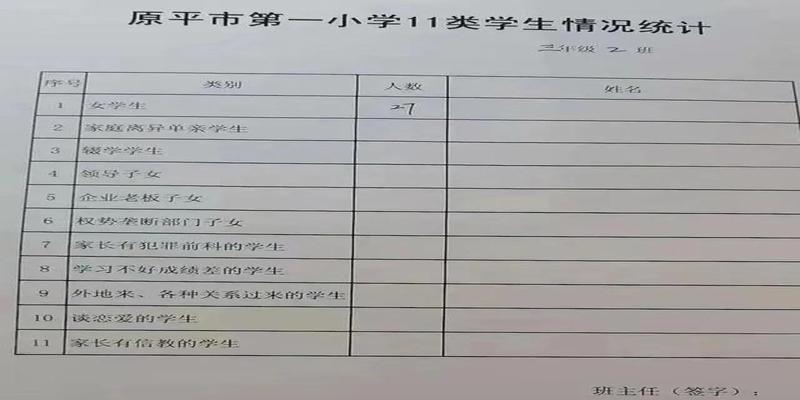 原平市第一小学11类学生情况统计
三年级 2 班
序号 类别 人数 姓名
1 女学生 27
2 家庭离异单亲学生
3 辍学学生
4 领导子女
5 企业老板子女
6 权势垄断部门子女
7 家长有犯罪前科的学生
8 学习不好成绩差的学生
9 外地来、各种关系过来的学生
10 谈恋爱的学生
11 家长有信教的学生
班主任（签字）：